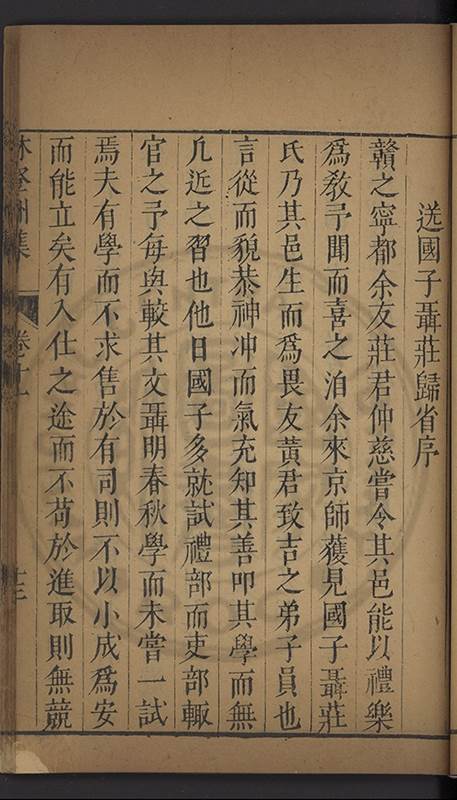 送國子聶莊歸省序
贛之寧都余友莊君仲慈嘗令其邑能以禮樂
為敎予聞而喜之洎余來京師獲見國子聶莊
氏乃其邑生而為畏友黃君致吉之弟子員也
言從而貌恭神冲而氣充知其善叩其學而無
凡近之習也他日國子多就試禮部而吏部輙
官之予每與較其文聶明春秋學而未嘗一試
焉夫有學而不求售於有司則不以小成為安
而能立矣有入仕之途而不苟於進取則無競
林登州集 卷十一 十二